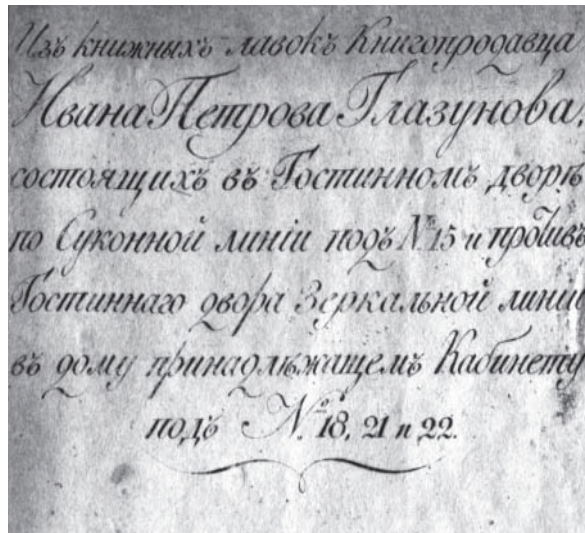 Изъ книжныхъ лавокъ Книгопродавца
Ивана Петрова Глазунова,
состоящихъ въ Гостинномъ дворѣ
по Суконной линіи подъ №15 и противъ
Гостиннаго двора Зеркальной линіи
въ дому принадлѣжащемъ Кабинету
подъ №18, 21 и 22.